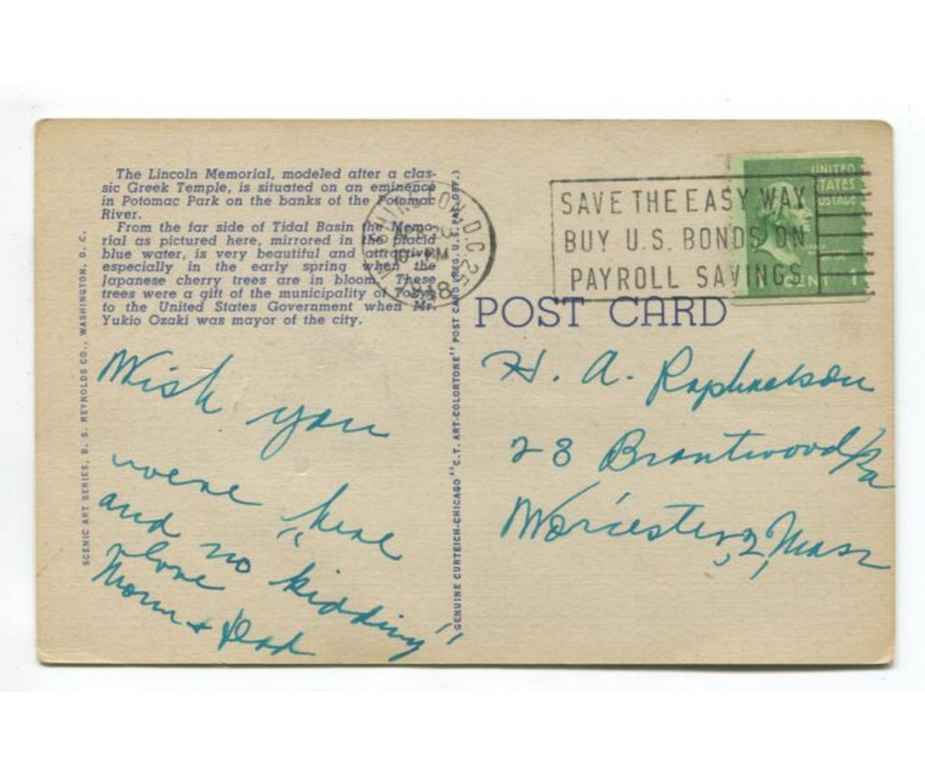 The Lincoln Memorial, modeled after a clas-
sic Greek Temple, is situated on an eminence
in Potomac Park on the banks of the Potomac
River.
From the far side of Tidal Basin the Memo-
rial as pictured here, mirrored in the placid
blue water, is very beautiful and attractive
especially in the early spring when the
Japanese cherry trees are in bloom. These
trees were a gift of the municipality of Tokyo
to the United States Government when Mr.
Yukio Ozaki was mayor of the city.
SCENIC ART SERIES, B. S. REYNOLDS CO., WASHINGTON, D. C.
Wish you
were "here
and no kidding"
love
Mom + Dad
GENUINE CURTEICH-CHICAGO "C.T. ART-COLORTONE" POST CARD (REG. U.S. PAT. OFF.)
WASHINGTON, D.C. 25
20
PM
1948
SAVE THE EASY WAY
BUY U.S. BONDS ON
PAYROLL SAVINGS
UNITED
STATES
POSTAGE
CENT 1
POST CARD
H. A. Raphaelson
28 Brantwood
Worcester, 2, Mass